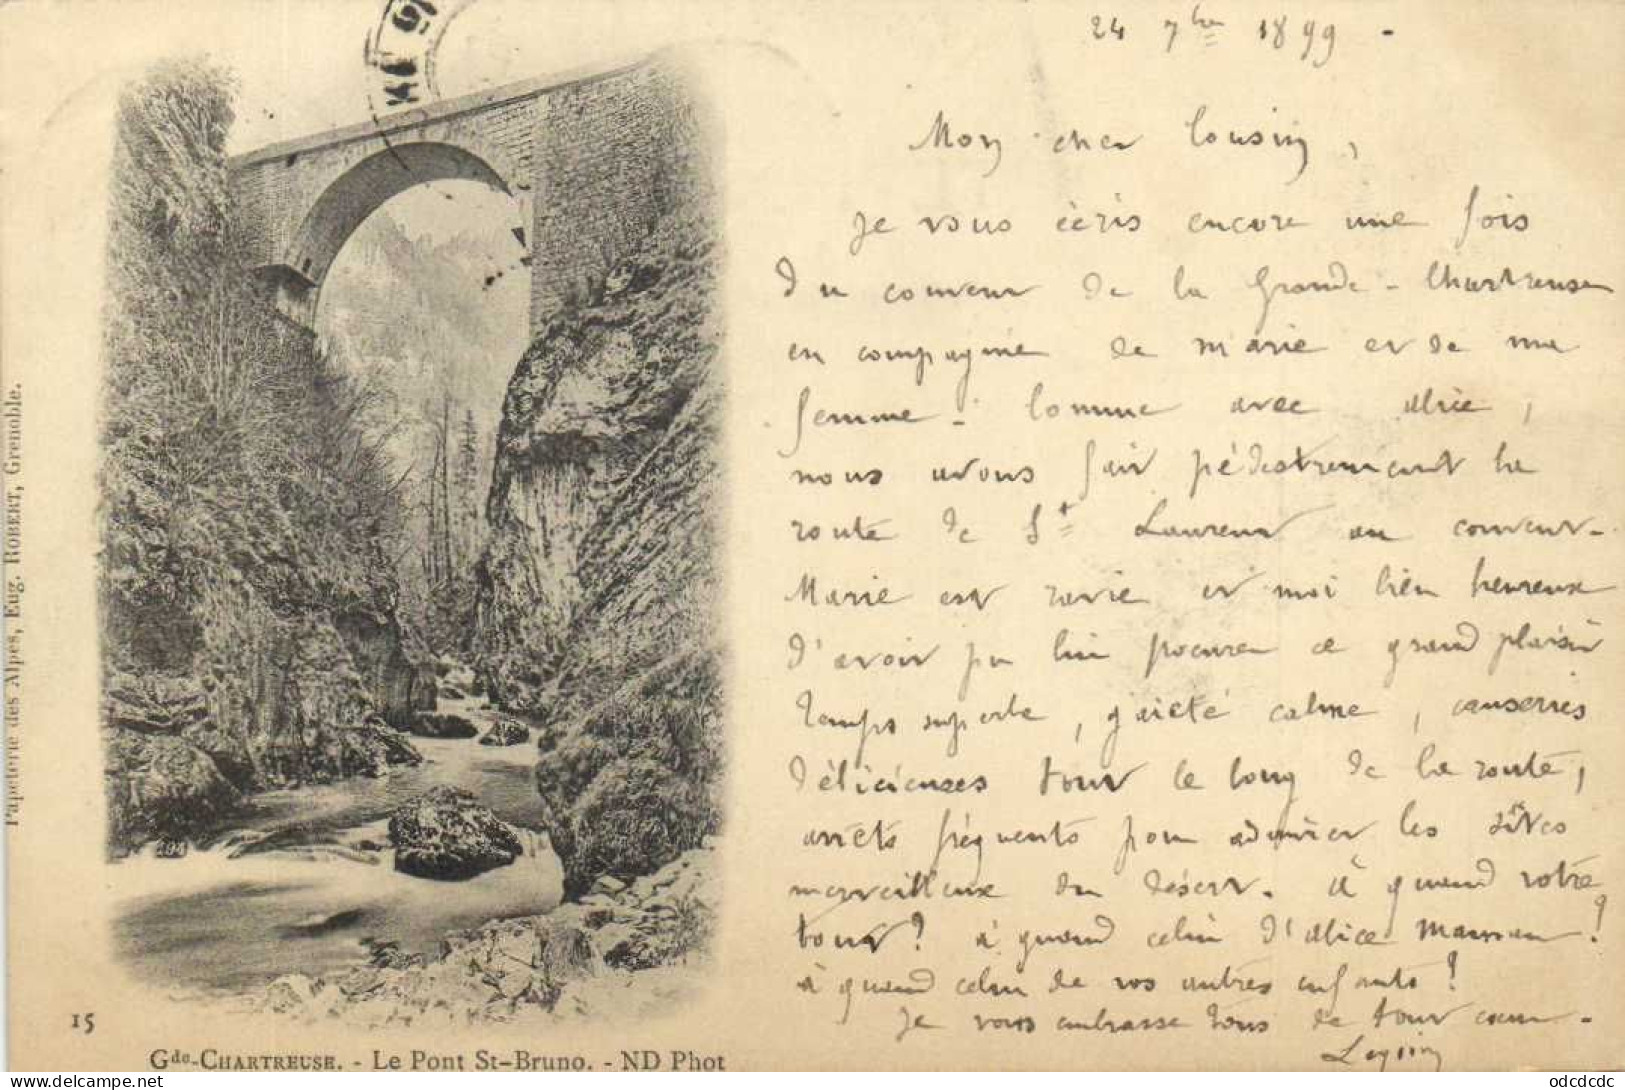 24 7bre 1899 -
Mon cher Cousin,
Je vous écris encore une fois
du couvent de la Grande-Chartreuse
en compagnie de Marie et de ma
femme. Comme avec Alice,
nous avons fait pédestrement la
route de St Laurent au couvent.
Marie est ravie et moi bien heureux
d'avoir pu lui procurer ce grand plaisir
temps superbe, gaieté calme, causeries
délicieuses tout le long de la route,
arrêts fréquents pour admirer les sites
merveilleux du désert. À quand votre
tour? à quand celui d'Alice!
à quand celui de vos autres enfants!
Je vous embrasse tous de tout cœur.
Papeterie des Alpes, Eug. ROBERT, Grenoble.
15
Gde-CHARTREUSE. - Le Pont St-Bruno. - ND Phot
odcdcdc